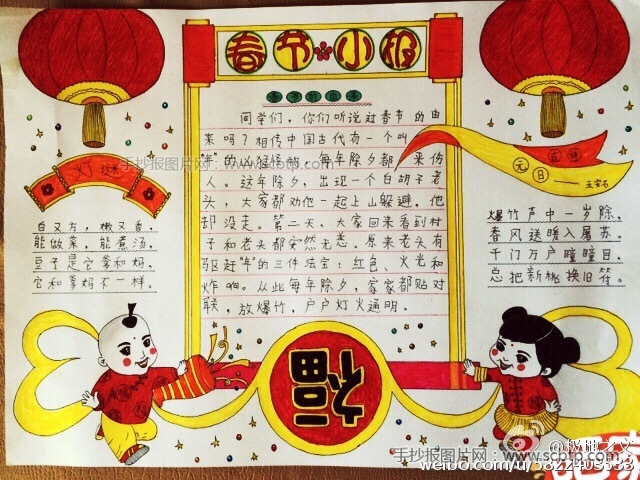 春节小报
春节的由来
同学们，你们听说过春节的由
来吗？相传中国古代有一个叫
"年"的凶猴怪物，每年除夕都来伤
人。这年除夕，出现一个白胡子老
头，大家都劝他一起上山躲避，他
却没走。第二天，大家回来看到村
子和老头都安然无恙。原来老头有
驱赶"年"的三件法宝：红色、火光和
炸响。从此每年除夕，家家都贴对
联，放爆竹，户户灯火通明。
灯谜
白又方，嫩又香，
能做菜，能煮汤，
豆子是它爹和妈，
它和爹妈不一样。
元日
王安石
爆竹声中一岁除，
春风送暖入屠苏。
千门万户曈曈日，
总把新桃换旧符。
福
手抄报图片网 www.scbtp.com
手抄报图片网：
www.scbtp.com
weibo.com/u/5822403533